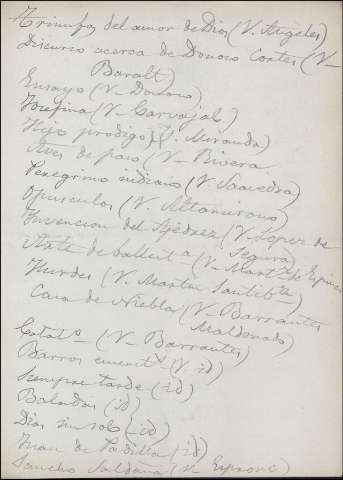 Triunfos del amor de Dios (V. Angeles)
Discurso acerca de Donoso Cortes (V-
Baralt)
Ensayo (V- Donoso)
Josefina (V- Carvajal)
Hijo prodigo (V. Miranda)
Aves de paso (V- Rivera
Peregrino indiano (V- Saavedra)
Opusculos (V- Altamirano)
Invencion del Ajedrez (V Lopez de
Segura)
Arte de ballestª (V- Martz de Espinar
Hurdes (V. Martin Santibz
Casa de Niebla (V- Barrantes
Maldonado)
Catalº (V- Barrantes)
Barros emeritº (V- id)
Siempre tarde (id)
Baladas (id)
Dias sin sol (id)
Juan de Padilla (id)
Sancho Saldaña (V- Espronc)